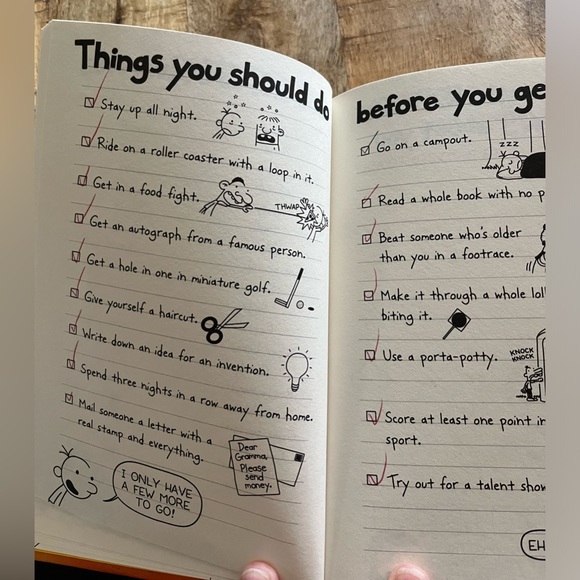 Things you should do
zzz
Stay up all night.
Ride on a roller coaster with a loop in it.
Get in a food fight.
THWAP
Get an autograph from a famous person.
Get a hole in one in miniature golf.
Give yourself a haircut.
Write down an idea for an invention.
Spend three nights in a row away from home.
Mail someone a letter with a
real stamp and everything.
Dear
Gramma,
Please
send
money.
I ONLY HAVE
A FEW MORE
TO GO!
before you ge
Go on a campout.
Read a whole book with no p
Beat someone who's older
than you in a footrace.
Make it through a whole lol
biting it.
Use a porta-potty.
KNOCK
KNOCK
Score at least one point in
sport.
Try out for a talent show
EH